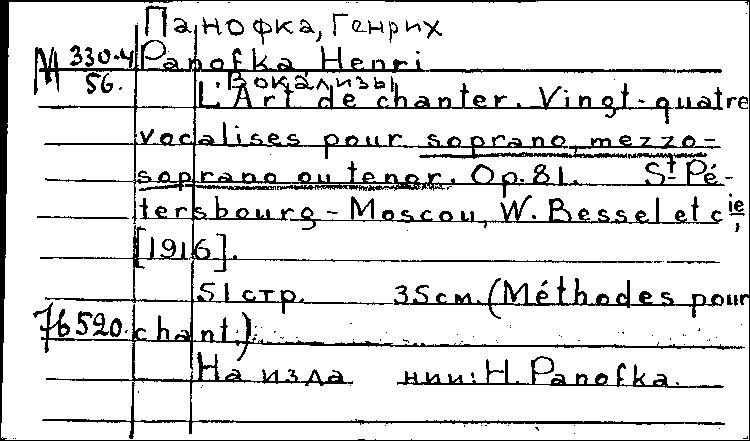 Панофка, Генрих
М 330-4 Panofka Henri
56. Вокализы
L'Art de chanter. Vingt-quatre
vocalises pour soprano, mezzo-
soprano ou tenor. Op. 81. St Pé-
tersbourg - Moscou, W. Bessel et cie,
[1916].
51 стр. 35 см. (Méthodes pour
76520. chant.)
На изда нии: H. Panofka.